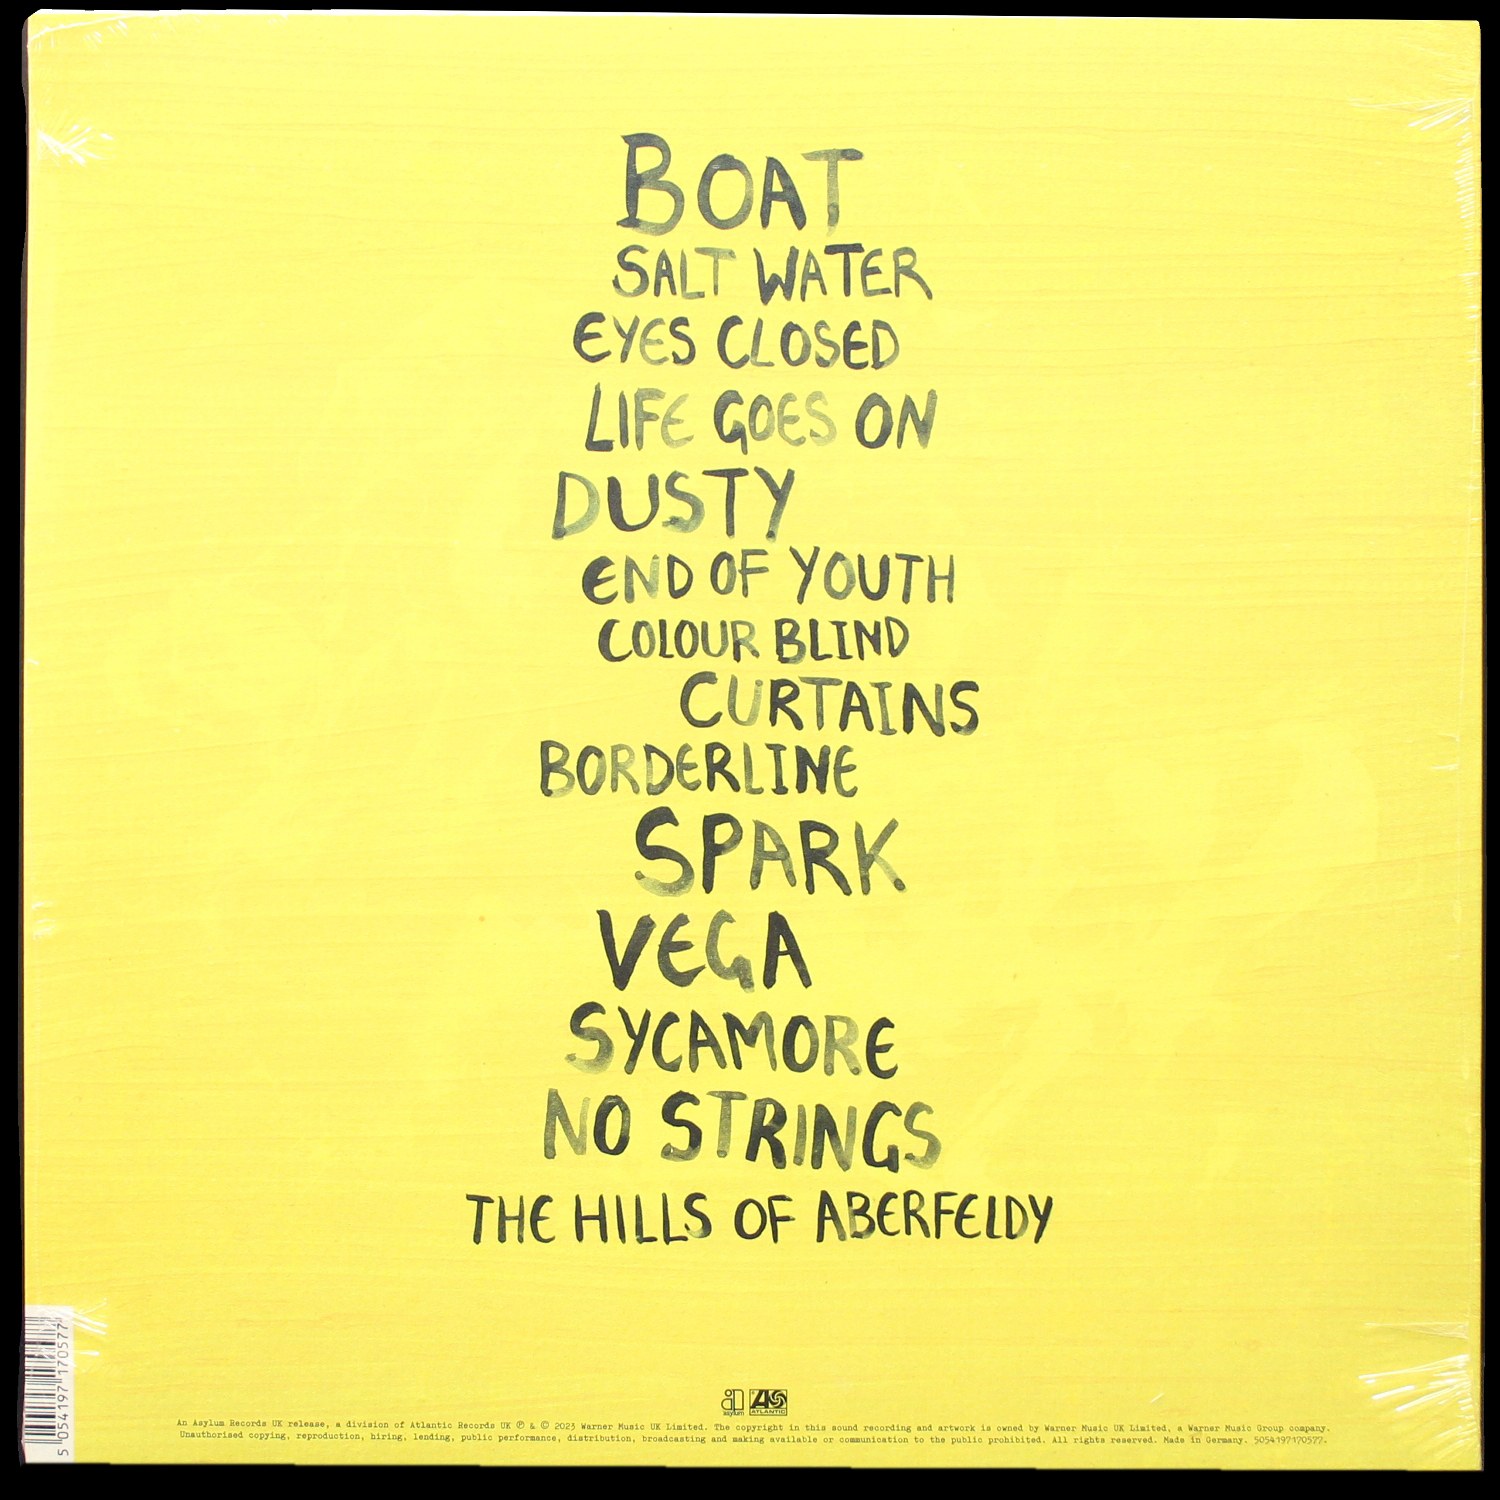 BOAT
SALT WATER
EYES CLOSED
LIFE GOES ON
DUSTY
END OF YOUTH
COLOUR BLIND
CURTAINS
BORDERLINE
SPARK
VEGA
SYCAMORE
NO STRINGS
THE HILLS OF ABERFELDY
5 054197 170577
asylum
ATLANTIC
An Asylum Records UK release, a division of Atlantic Records UK ℗ & © 2023 Warner Music UK Limited. The copyright in this sound recording and artwork is owned by Warner Music UK Limited, a Warner Music Group company.
Unauthorised copying, reproduction, hiring, lending, public performance, distribution, broadcasting and making available or communication to the public prohibited. All rights reserved. Made in Germany. 5054197170577.